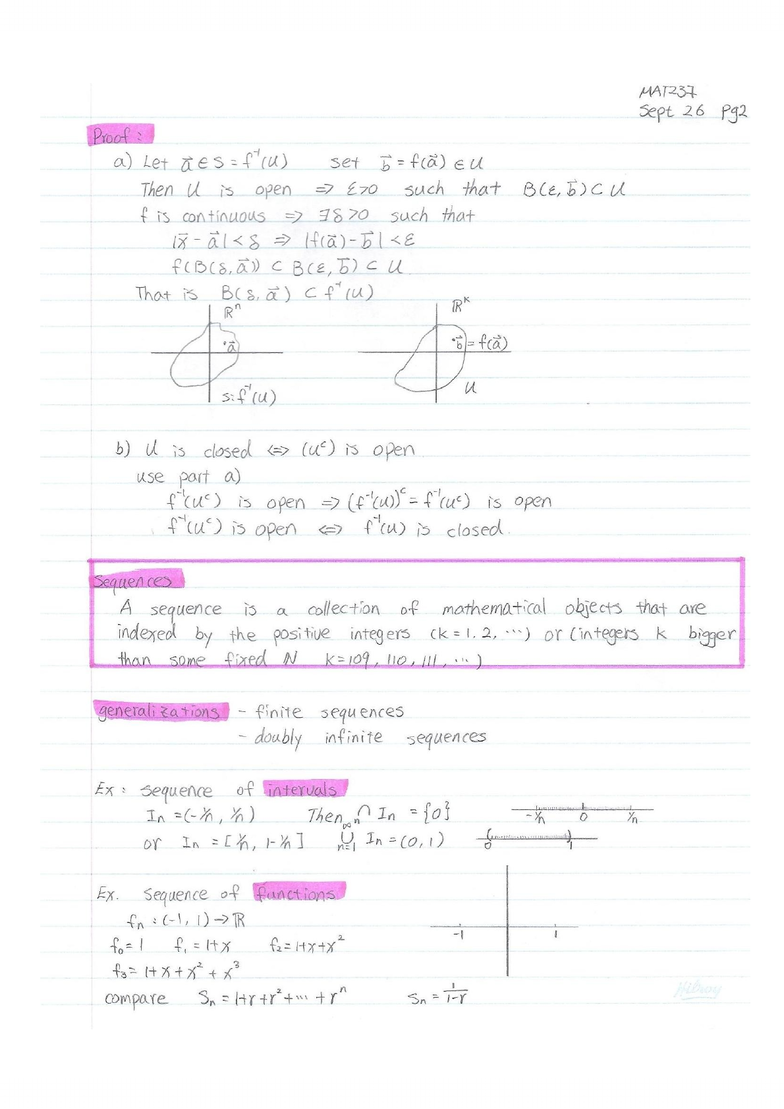 MAT237
Sept 26 Pg2
Proof:
a) Let a⃗ ∈ S = f⁻¹(U) set b⃗ = f(a⃗) ∈ U
Then U is open ⇒ ε>0 such that B(ε, b⃗) ⊂ U
f is continuous ⇒ ∃δ>0 such that
|x⃗ - a⃗| < δ ⇒ |f(a⃗) - b⃗| < ε
f(B(δ, a⃗)) ⊂ B(ε, b⃗) ⊂ U
That is B(δ, a⃗) ⊂ f⁻¹(U)
ℝⁿ ℝᵏ
·a⃗ ·b⃗ = f(a⃗)
S=f⁻¹(U) U
b) U is closed ⇔ (Uᶜ) is open
use part a)
f⁻¹(Uᶜ) is open ⇒ (f⁻¹(U))ᶜ = f⁻¹(Uᶜ) is open
f⁻¹(Uᶜ) is open ⇔ f⁻¹(U) is closed.
Sequences
A sequence is a collection of mathematical objects that are
indexed by the positive integers (k = 1, 2, ···) or (integers k bigger
than some fixed N k=109, 110, 111, ···)
generalizations - finite sequences
- doubly infinite sequences
Ex: sequence of intervals
Iₙ = (-1/n, 1/n) Then ∩ₙ Iₙ = {0} -1/n 0 1/n
or Iₙ = [1/n, 1-1/n] ∞∪n=1 Iₙ = (0, 1) 0 1
Ex. Sequence of functions
fₙ : (-1, 1) → ℝ
f₀ = 1 f₁ = 1+x f₂ = 1+x+x² -1 1
f₃ = 1+x+x²+x³
compare Sₙ = 1+r+r²+···+rⁿ Sₙ = 1/(1-r)
Hilroy